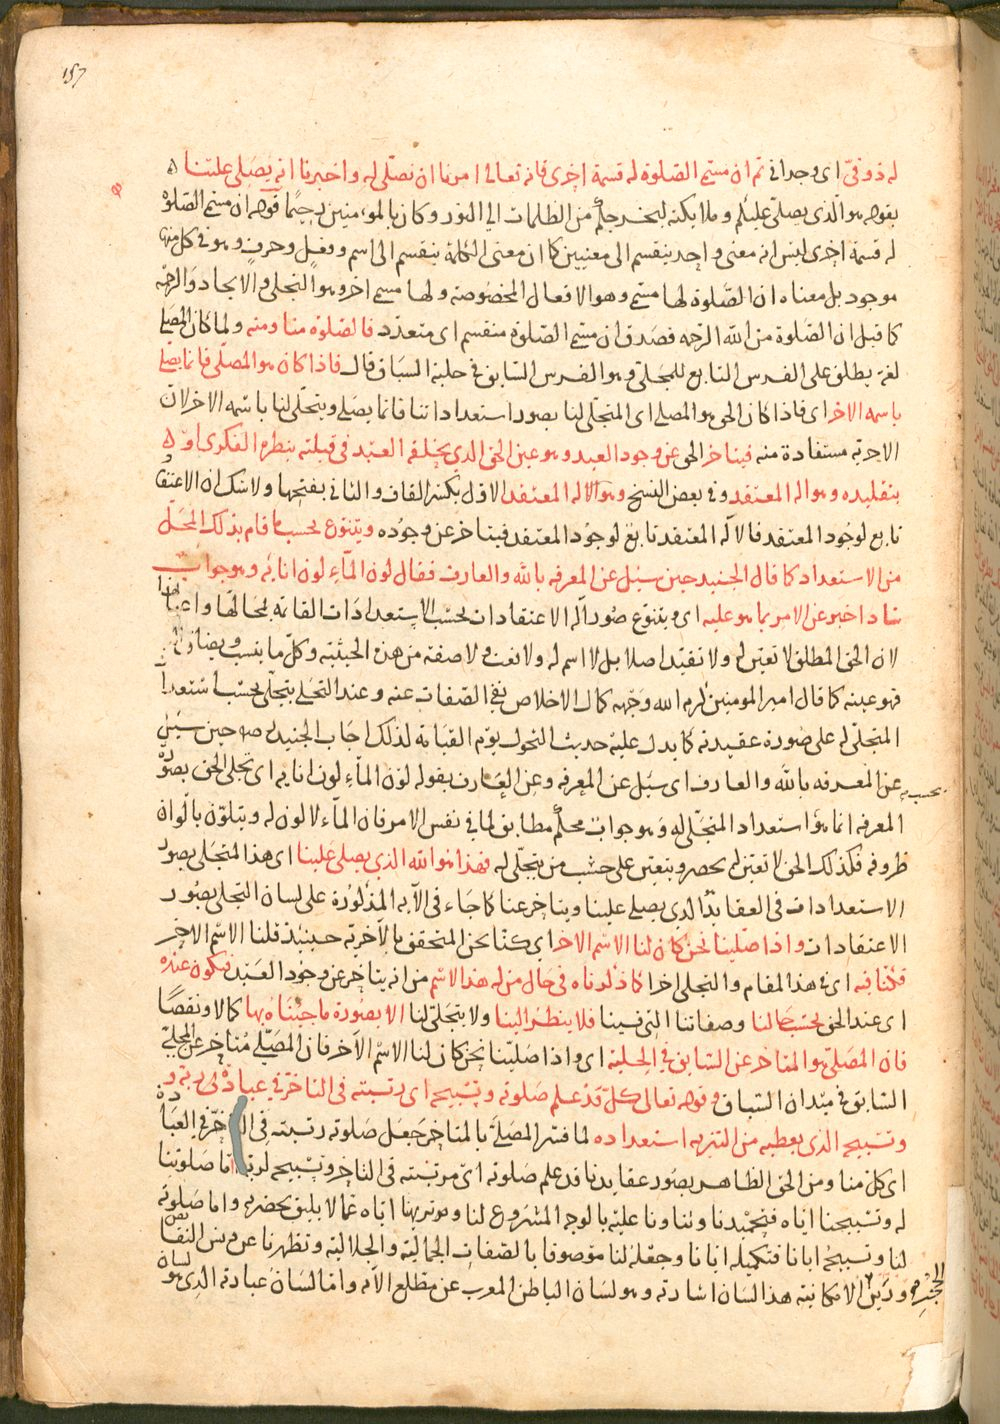 ١٥٧
له ذوقيّ اى وجداني ثم ان مسمى الصلوة له قسمة اخرى فانه تعالى امرنا ان نصلى له واخبرنا انه يصلى علينا ه
بقوله هو الذى يصلى عليكم وملايكته ليخرجكم من الظلمات الى النور وكان بالمؤمنين رحيما قوله ان مسمى الصلوة
له قسمة اخرى ليس انه معنى واحد ينقسم الى معنيين كما ان معنى الكلمة ينقسم الى اسم وفعل وحرف وهو فى كل منها
موجود بل معناه ان الصلوة لها مسمى وهو الافعال المخصوصة ولها مسمى اخر وهو التجلى والايجاد والرحمة
كما قيل ان الصلوة من الله الرحمه فصدق ان مسمى الصلوة منقسم اى متعدد فالصلوة منا ومنه ولما كان المصلى
لغة يطلق على الفرس التابع للمجلى وهو الفرس السابق فى حلبة السباق قال فاذا كان هو المصلى فانما يصلى
باسمه الاخر اى فاذا كان الحق هو المصلى اى المتجلى لنا بصور استعداداتنا فانما يصلى ويتجلى لنا باسمه الاخر لان
الاخرية مستفادة منه فيتاخر الحق عن وجود العبد وهو عين الحق الذى يخلقه العبد فى قبلته بنظره الفكرى او ه
بتقليده وهو اله المعتقد وفى بعض النسخ وهو الاله المعتقد الاول بكسر القاف والثانى بفتحها ولا شك ان الاعتقاد
تابع لوجود المعتقد فالاله المعتقد تابع لوجود المعتقد فيتاخر عن وجوده ويتنوع بحسب ما قام بذلك المحل
من الاستعداد كما قال الجنيد حين سئل عن المعرفه بالله والعارف فقال لون الماء لون انائه وهو جواب
ساد اخبر عن الامر بما هو عليه اى ويتنوع صور اله الاعتقادات بحسب الاستعدادات القائمه بمحالها واعيانها
لان الحق المطلق لا تعين له ولا تقيد اصلا بل لا اسم له ولا نعت ولا صفة من هذه الحيثية وكل ما ينسب ويضاف اليه
فهو عينه كما قال امير المومنين كرم الله وجهه كمال الاخلاص نفى الصفات عنه وعند التجلى يتجلى بحسب استعداد
المتجلى له على صورة عقيدته كما يدل عليه حديث التحول يوم القيامه لذلك اجاب الجنيد رضه حين سئل
عن المعرفه بالله والعارف اى سئل عن المعرفه وعن العارف بقوله لون الماء لون انائه اى تجلى الحق بصورة
المعرفه انما هو استعداد المتجلى له وهو جواب محكم مطابق لما فى نفس الامر فان الماء لا لون له ويتلون بالوان
ظروفه فكذلك الحق لا تعين له يحصره ويتعين على حسب من يتجلى له فهذا هو الله الذى يصلى علينا اى هذا المتجلى بصور
الاستعدادات فى العقايد الذى يصلى علينا ويتاخر عنا كما جاء فى الآيه المذكورة على لسان التجلى بصور
الاعتقادات واذا صلينا نحن كان لنا الاسم الاخر اى كنا نحن المتحقق بالآخرية حينئذ فلنا الاسم الاخر
فكنا فيه اى فى هذا المقام والتجلى اخرا كما ذكرناه فى حال من له هذا الاسم من انه يتاخر عن وجود العبد فنكون عنده
اى عند الحق بحسب حالنا وصفاتنا التى فينا فلا ينظر الينا ولا يتجلى لنا الا بصورة ما جئناه بها كمالا ونقصا
فان المصلى هو المتاخر عن السابق فى الحلبة اى واذا صلينا نحن كان لنا الاسم الآخر فان المصلى متاخر عن المجلى
السابق فى ميدان السباق وقوله تعالى كل قد علم صلوته وتسبيحه اى رتبته فى التاخر فى عبادة ربه و
وتسبيحه الذى يعطيه من التنزيه استعداده لما فسر المصلى بالمتاخر جعل صلوته رتبته فى التاخر فى العبادة
اى كل منا ومن الحق الظاهر بصور عقايدنا قد علم صلوته اى مرتبته فى التاخر وتسبيحه لربه اما صلوتنا
له وتسبيحنا اياه فتحميدنا وثناونا عليه بالوجه المشروع لنا وتنزيهنا اياه عما لا يليق بحضرته واما صلوته
لنا وتسبيحه ايانا فتكميله ايانا وجعله لنا موصوفا بالصفات الجمالية والجلالية وتطهرنا عن دنس النقائص
ورين الامكانية هذا لسان اشارته وهو لسان الباطن المعرب عن مطلع الآيه واما لسان عبادته الذى هو لسان
بحسبه